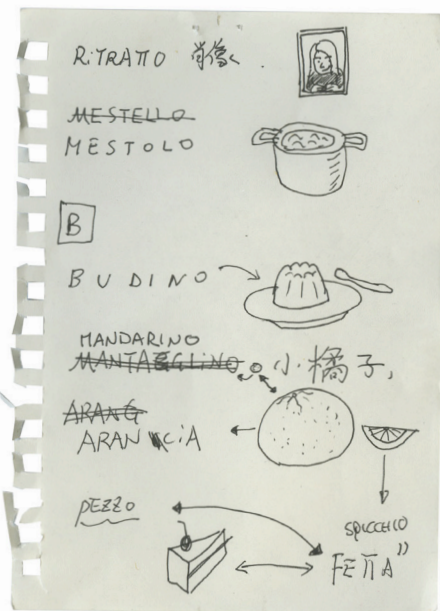 RiTRATTO 肖像
MESTELLO
MESTOLO
B
BUDINO
MANDARINO
小橘子,
ARANG
ARANCiA
PEZZO
SPICCHIO
FETTA"